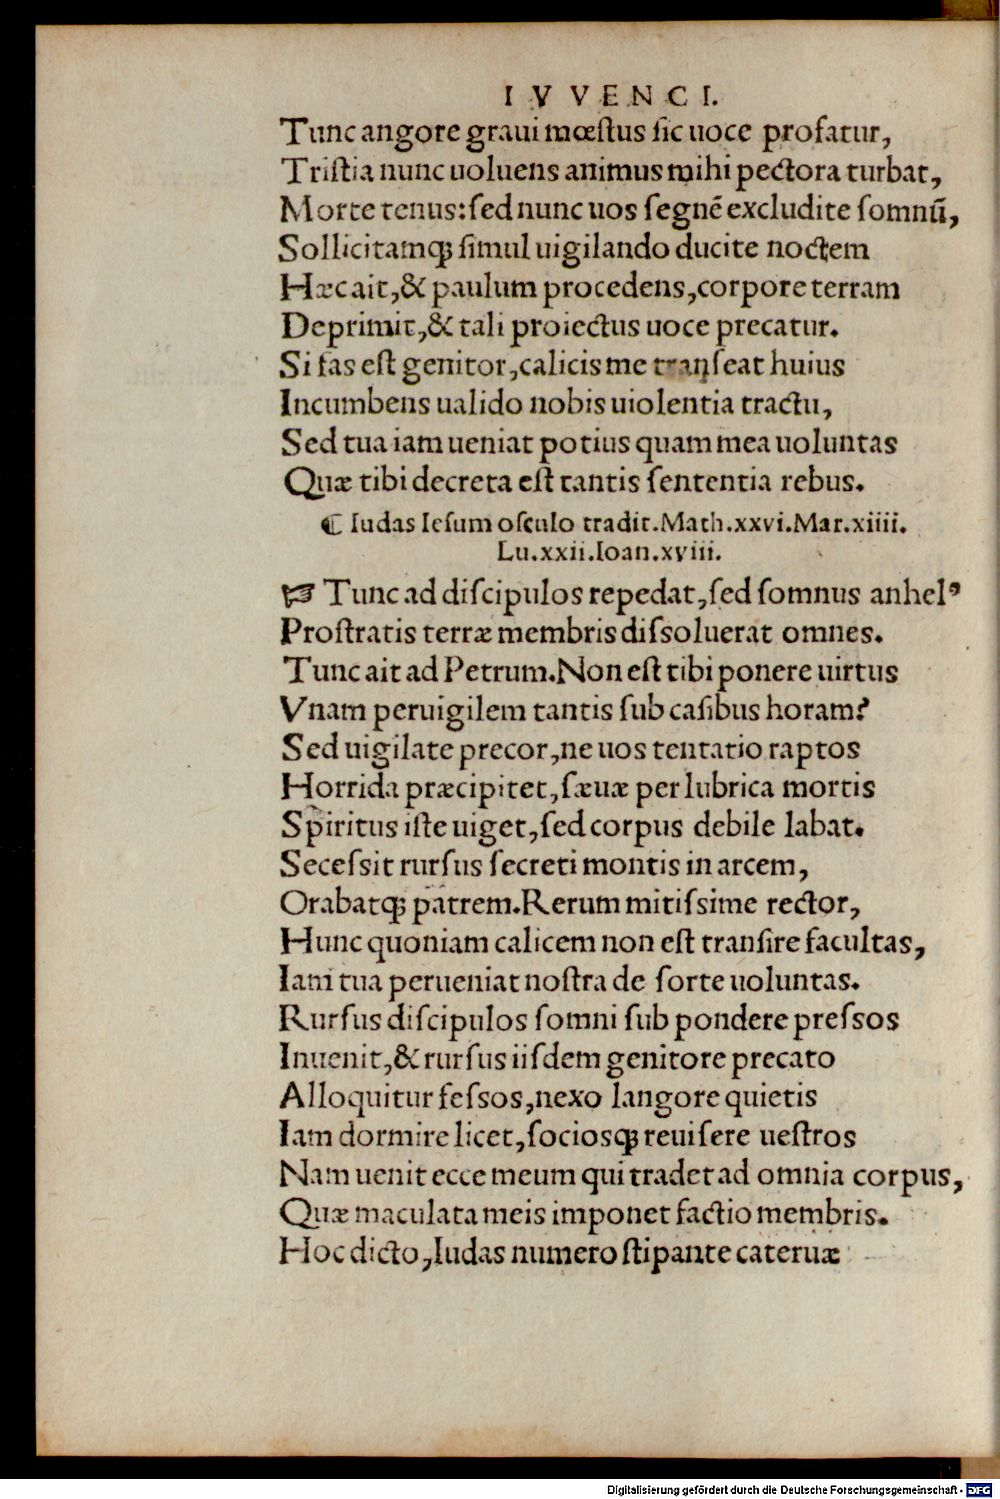 IVVENCI.
Tunc angore graui mœſtus ſic uoce profatur,
Triſtia nunc uoluens animus mihi pectora turbat,
Morte tenus: ſed nunc uos ſegnē excludite ſomnū,
Sollicitamq́ꝫ ſimul uigilando ducite noctem
Hæc ait, & paulum procedens, corpore terram
Deprimit, & tali proiectus uoce precatur.
Si fas eſt genitor, calicis me tranſeat huius
Incumbens ualido nobis uiolentia tractu,
Sed tua iam ueniat potius quam mea uoluntas
Quæ tibi decreta eſt tantis ſententia rebus.
☾ Iudas Ieſum oſculo tradit. Math.xxvi. Mar.xiiii.
Lu.xxii. Ioan.xviii.
☞ Tunc ad diſcipulos repedat, ſed ſomnus anhelꝰ
Proſtratis terræ membris diſſoluerat omnes.
Tunc ait ad Petrum. Non eſt tibi ponere uirtus
Vnam peruigilem tantis ſub caſibus horam?
Sed uigilate precor, ne uos tentatio raptos
Horrida præcipitet, ſæuæ per lubrica mortis
Spiritus iſte uiget, ſed corpus debile labat.
Seceſsit rurſus ſecreti montis in arcem,
Orabatq́ꝫ patrem. Rerum mitiſsime rector,
Hunc quoniam calicem non eſt tranſire facultas,
Iam tua perueniat noſtra de ſorte uoluntas.
Rurſus diſcipulos ſomni ſub pondere preſsos
Inuenit, & rurſus iiſdem genitore precato
Alloquitur feſsos, nexo langore quietis
Iam dormire licet, ſociosq́ꝫ reuiſere ueſtros
Nam uenit ecce meum qui tradet ad omnia corpus,
Quæ maculata meis imponet factio membris.
Hoc dicto, Iudas numero ſtipante cateruæ
Digitalisierung gefördert durch die Deutsche Forschungsgemeinschaft - DFG